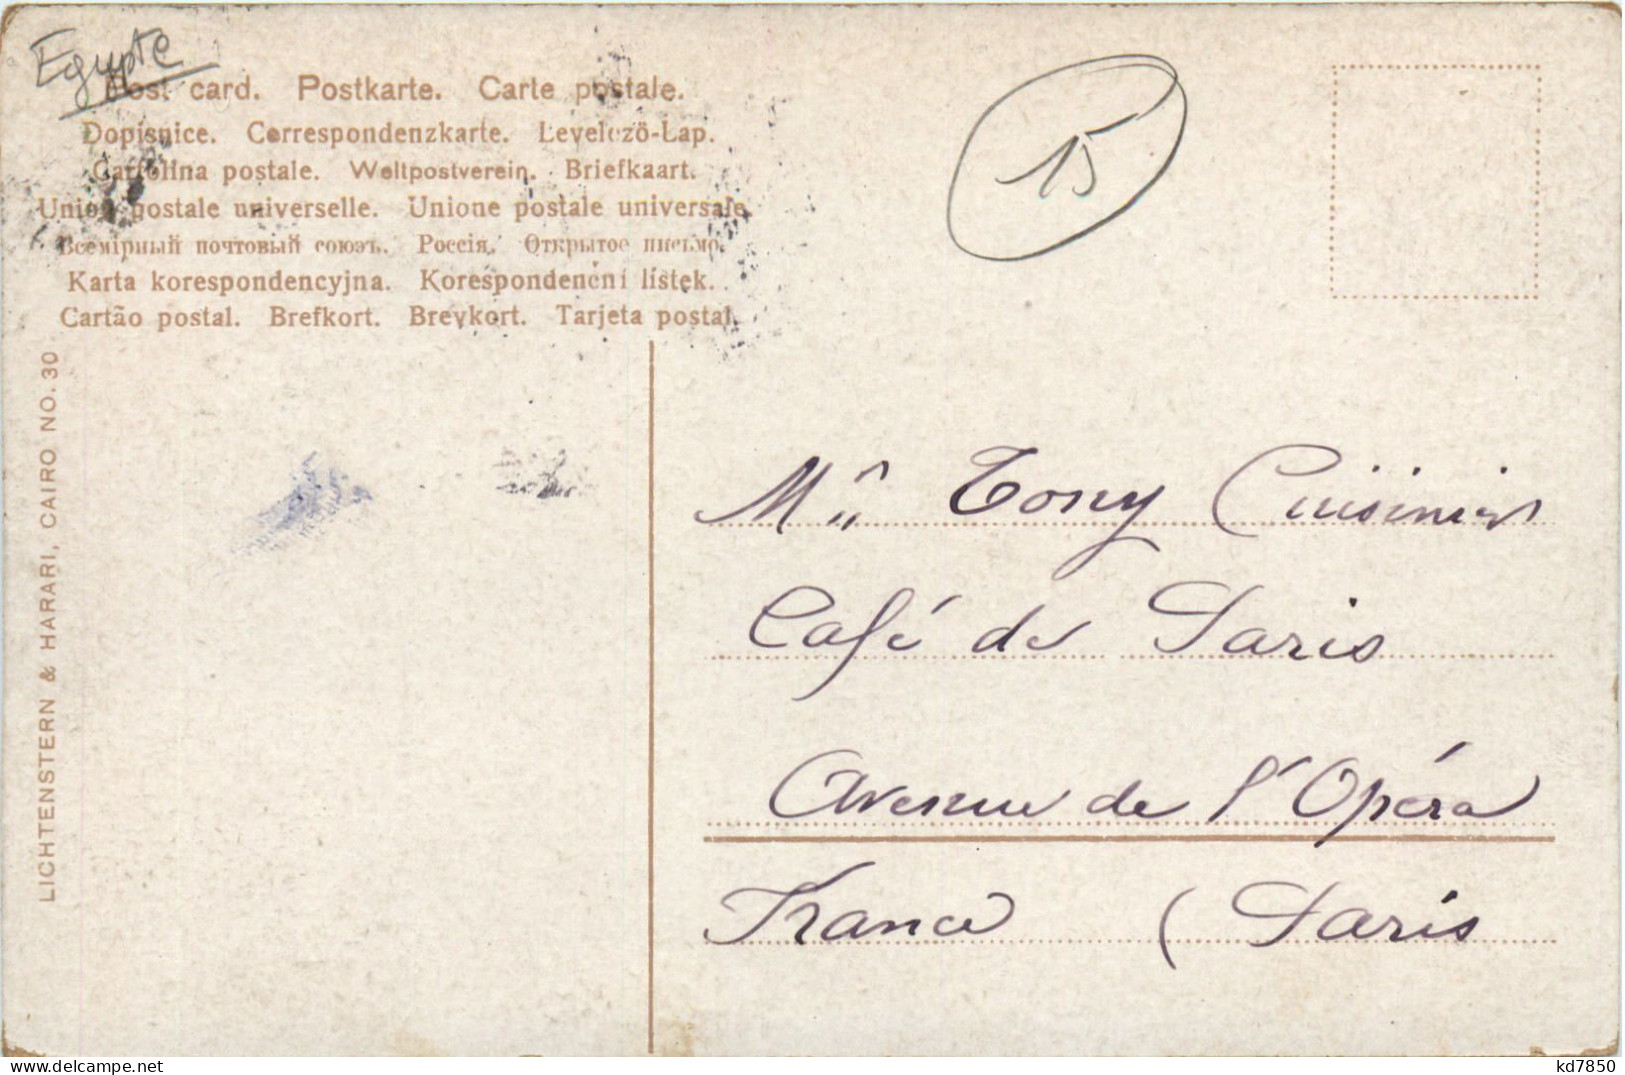 Egypte
Post card. Postkarte. Carte postale.
Dopisnice. Correspondenzkarte. Levelező-Lap.
Cartolina postale. Weltpostverein. Briefkaart.
Union postale universelle. Unione postale universale.
Всемірный почтовый союзъ. Россія. Открытое письмо.
Karta korespondencyjna. Korespondenční lístek.
Cartão postal. Brefkort. Brevkort. Tarjeta postal.
15
LICHTENSTERN & HARARI, CAIRO NO. 30
Tony Cuisinier
Café de Paris
Avenue de l'Opéra
France (Paris
delcampe.net
kd7850